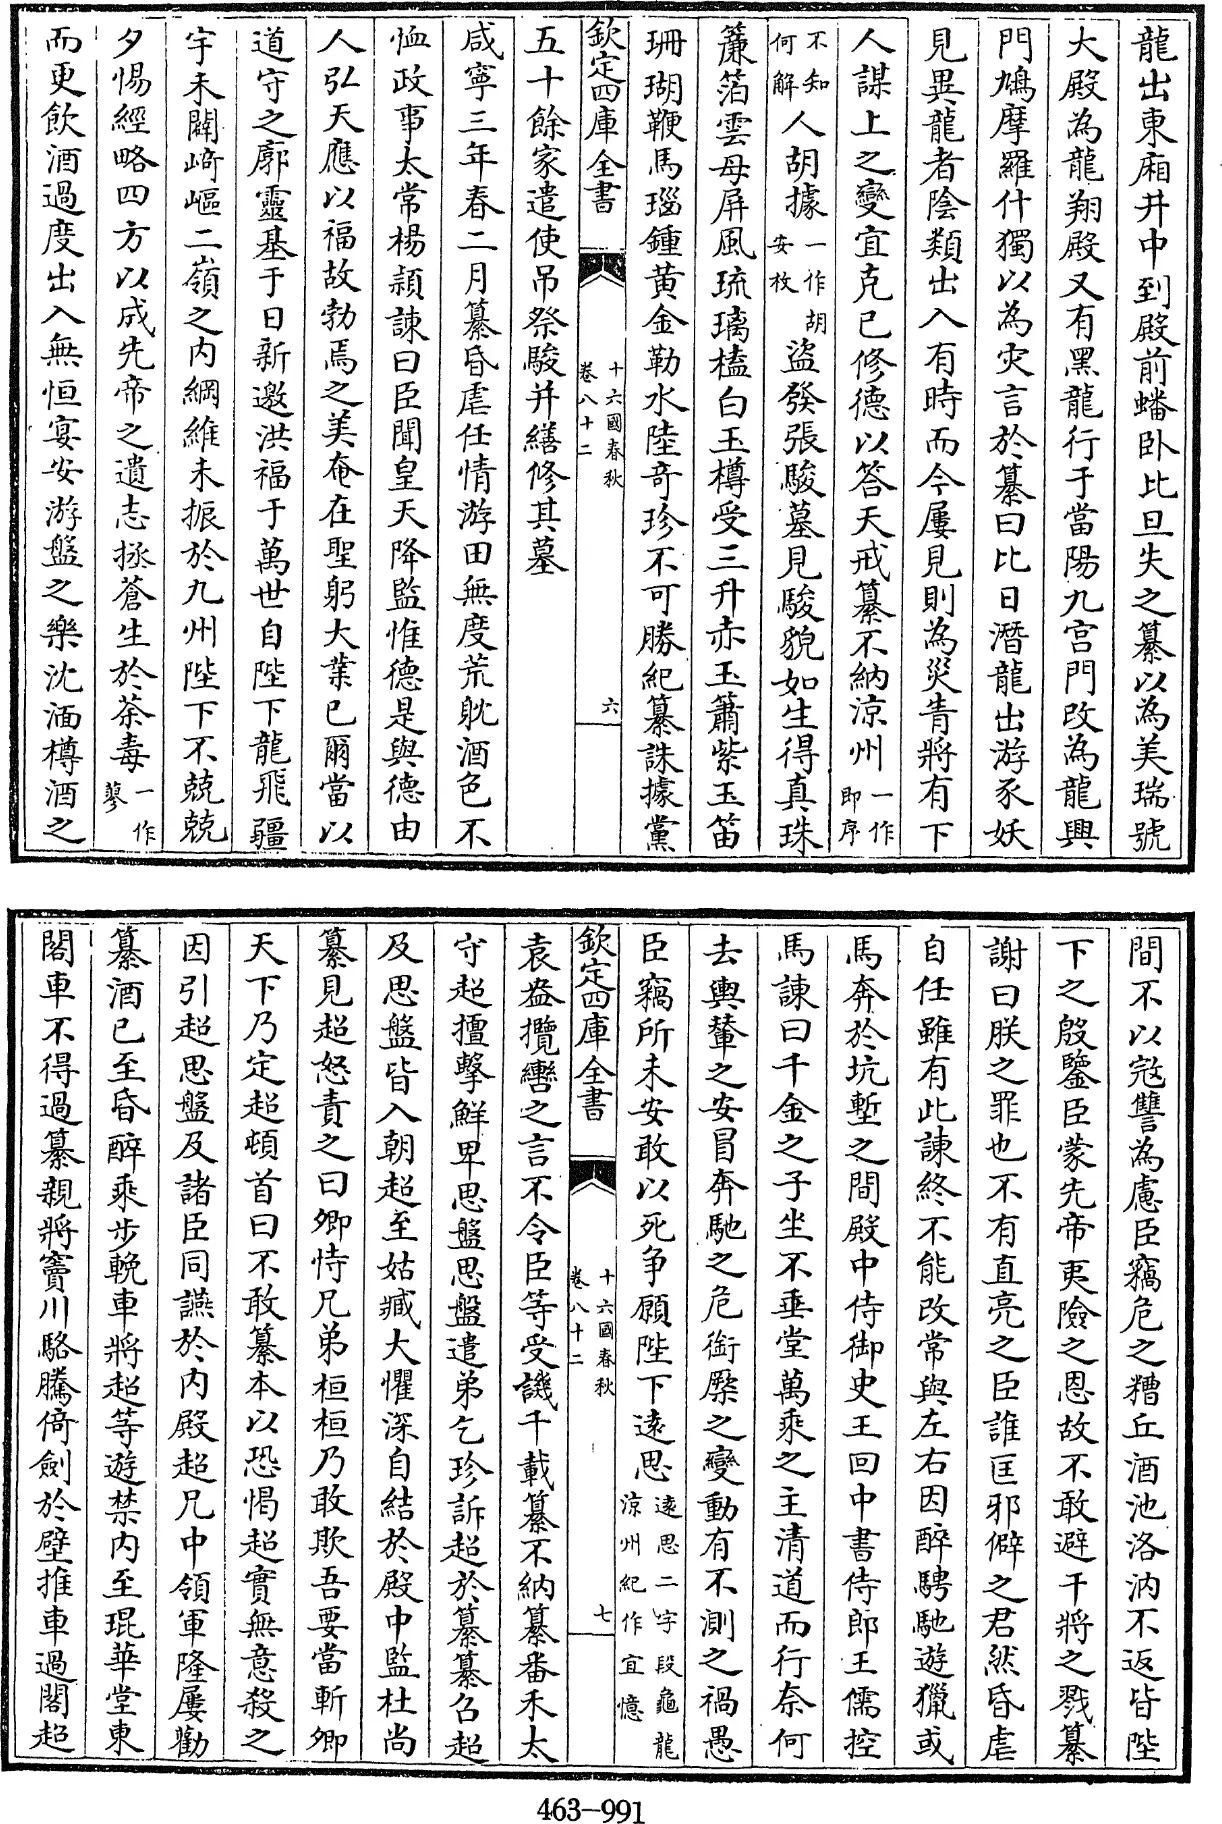 龍出東廂井中到殿前蟠卧比旦失之纂以為美瑞號
大殿為龍翔殿又有黑龍行于當陽九宫門改為龍興
門鳩摩羅什獨以為灾言於纂曰比日潛龍出游豕妖
見異龍者陰類出入有時而今屢見則為災眚將有下
人謀上之變宜克己修德以答天戒纂不納涼州一作即序
不知何解人胡據一作胡安枚盜發張駿墓見駿貌如生得真珠
簾箔雲母屏風琉璃榼白玉樽受三升赤玉簫紫玉笛
珊瑚鞭馬瑙鍾黄金勒水陸奇珍不可勝紀纂誅據黨
欽定四庫全書 十六國春秋卷八十二 六
五十餘家遣使吊祭駿并繕修其墓
咸寧三年春二月纂昏虐任情游田無度荒躭酒色不
恤政事太常楊穎諫曰臣聞皇天降監惟德是與德由
人弘天應以福故勃焉之美奄在聖躬大業已爾當以
道守之廓靈基于日新邀洪福于萬世自陛下龍飛疆
宇未闢崎嶇二嶺之内綱維未振於九州陛下不兢兢
夕惕經略四方以成先帝之遺志拯蒼生於荼毒一作蓼
而更飲酒過度出入無恒宴安游盤之樂沈湎樽酒之
間不以宼讐為慮臣竊危之糟丘酒池洛汭不返皆陛
下之殷鑒臣蒙先帝夷險之恩故不敢避干將之戮纂
謝曰朕之罪也不有直亮之臣誰匡邪僻之君然昏虐
自任雖有此諫終不能改常與左右因醉騁馳遊獵或
馬奔於坑塹之間殿中侍御史王回中書侍郎王儒控
馬諫曰千金之子坐不垂堂萬乘之主清道而行奈何
去輿輦之安冒奔馳之危銜橛之變動有不測之禍愚
臣竊所未安敢以死争願陛下遠思遠思二字段龜龍涼州紀作宜憶
欽定四庫全書 十六國春秋卷八十二 七
袁盎攬轡之言不令臣等受譏千載纂不納纂番禾太
守超擅擊鮮卑思盤思盤遣弟乞珍訴超於纂纂召超
及思盤皆入朝超至姑臧大懼深自結於殿中監杜尚
纂見超怒責之曰卿恃兄弟桓桓乃敢欺吾要當斬卿
天下乃定超頓首曰不敢纂本以恐愒超實無意殺之
因引超思盤及諸臣同讌於内殿超兄中領軍隆屢勸
纂酒已至昏醉乘步輓車將超等遊禁内至琨華堂東
閤車不得過纂親將竇川駱騰倚劍於壁推車過閤超
463-991